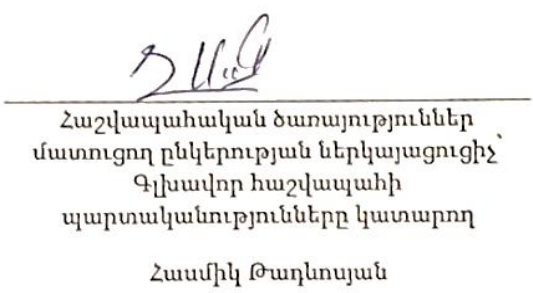 Հաշվապահական ծառայություններ
մատուցող ընկերության ներկայացուցիչ՝
Գլխավոր հաշվապահի
պարտականությունները կատարող
Հասմիկ Թադևոսյան